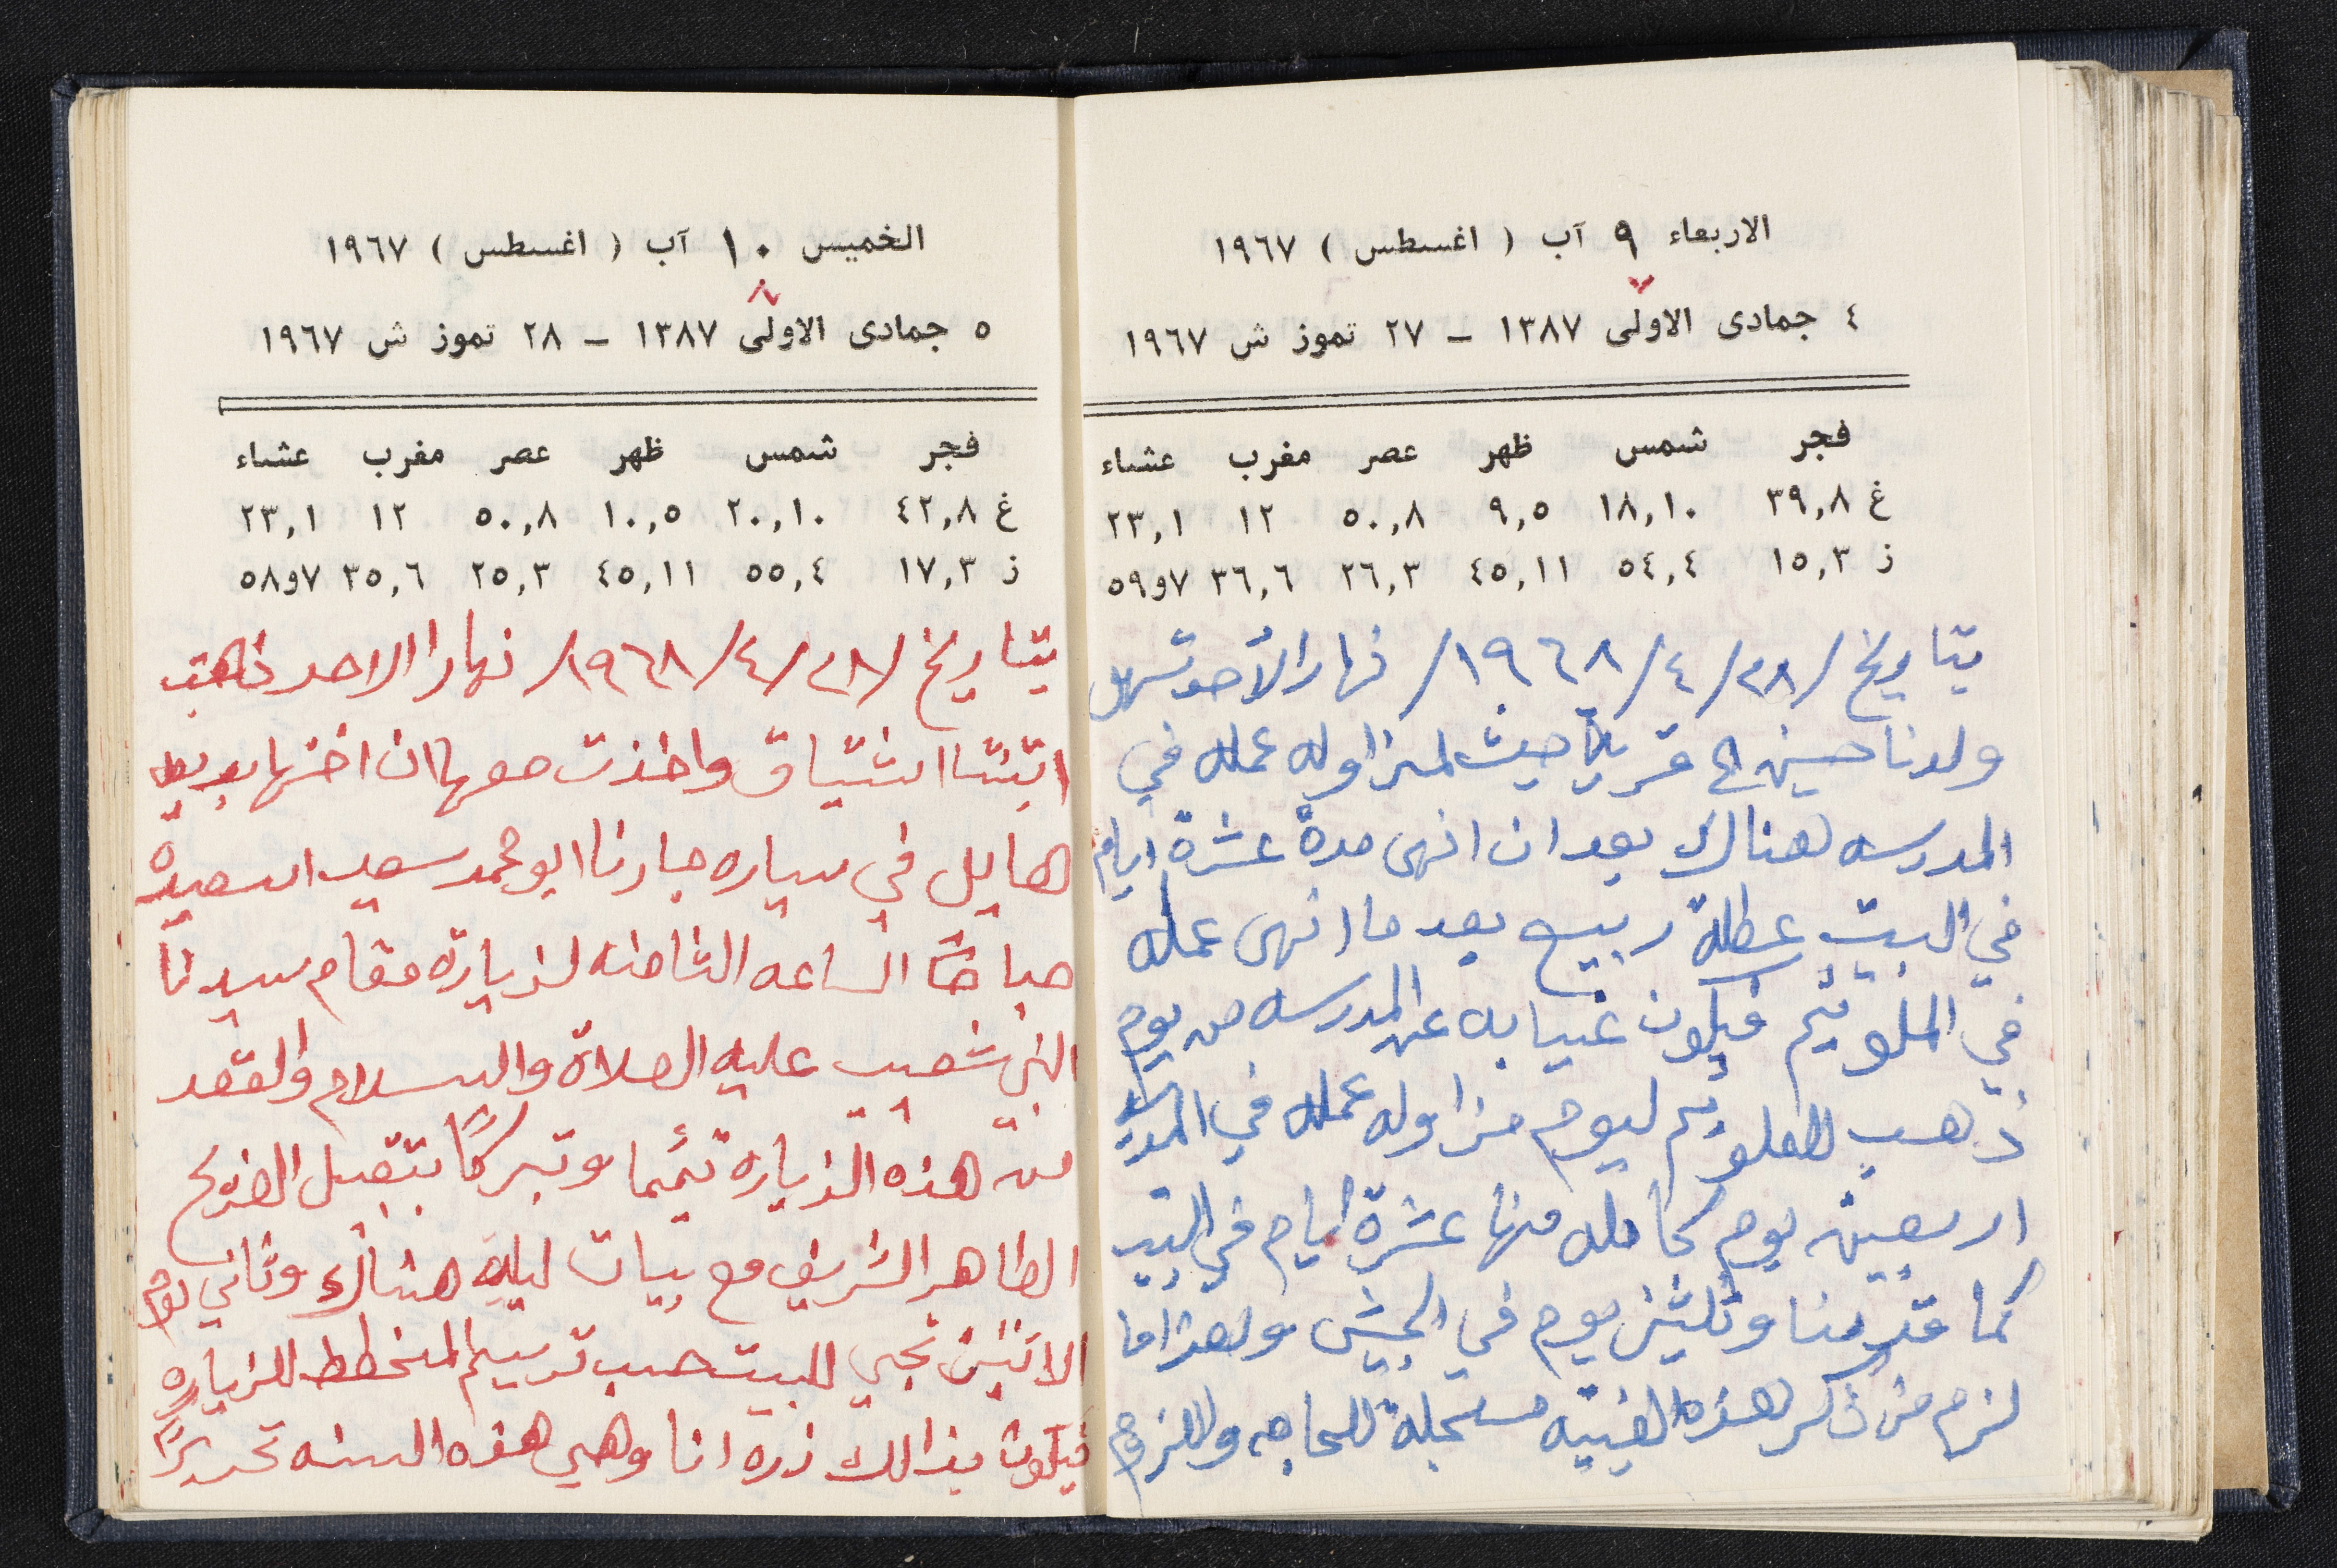 الاربعاء ٩ آب ( اغسطس ) ١٩٦٧
٧
٤ جمادى الاولى ١٣٨٧ – ٢٧ تموز ش ١٩٦٧
فجر شمس ظهر عصر مغرب عشاء
غ ٣٩,٨ ١٨,١٠ ٩,٥ ٥٠,٨ ١٢ ٢٣,١
ز ١٥,٣ ٥٤,٤ ٤٥,١١ ٢٦,٣ ٣٦,٦ ٧و٥٩
بتاريخ /٢٨/٤/١٩٦٨/ نهار الأحد تسهل
ولدنا حسين الى قريتا حيث لمزاوله عمله في
المدرسه هناك بعد ان انهى مدة عشرة ايام
في البيت عطلة ربيع بعد ما انهى عمله
في الملوثيم فيكون غيابه عن المدرسه من يوم
ذهب للملوثيم ليوم مزاوله عمله في المدرسه
اربعين يوم كامله منها عشرة ايام في البيت
كما قدمنا وثلثين يوم في الجيش ولهذا ما
لزم من ذكر هذه الغيبه مسجلة للحاجه واللزوم
الخميس ١٠ آب ( اغسطس ) ١٩٦٧
٨
٥ جمادى الاولى ١٣٨٧ – ٢٨ تموز ش ١٩٦٧
فجر شمس ظهر عصر مغرب عشاء
غ ٤٢,٨ ٢٠,١٠ ١٠,٥ ٥٠,٨ ١٢ ٢٣,١
ز ١٧,٣ ٥٥,٤ ٤٥,١١ ٢٥,٣ ٣٥,٦ ٧و٥٨
بتاريخ /٢٨/٤/١٩٦٨/ نهار الاحد ذهبت
ابنتنا اشتياق واخذت معها ان اختها
هايل في سياره جارنا ابو محمد سعيد اسعيده
صباحاً الساعه الثامنه لزيارة مقام سيدنا
النبي شعيب عليه الصلاة والسلام والقصد
من هذه الزياره تيمّما وتبركاً بتقبيل الضريح
الطاهر الشريف مع بيات ليلة هناك وثاني يوم
الاثنين تجي للبيت حسب ترسيم المخطط للزياره
فيكون بذالك زرة انا وهي هذه السنه تحريراً